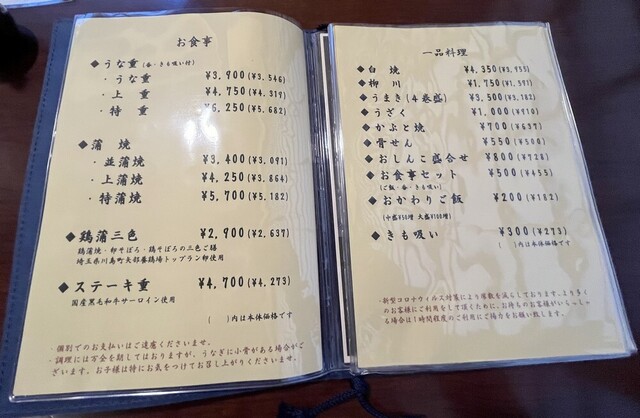 お食事
◆うな重（香・きも吸い付）
・うな重 ¥3,900(¥3,546)
・上重 ¥4,750(¥4,319)
・特重 ¥6,250(¥5,682)
◆蒲焼
・並蒲焼 ¥3,400(¥3,091)
・上蒲焼 ¥4,250(¥3,864)
・特蒲焼 ¥5,700(¥5,182)
◆鶏蒲三色 ¥2,900(¥2,637)
鶏蒲焼・卵そぼろ・鶏そぼろの三色ご膳
埼玉県川島町矢部養鶏場トップラン卵使用
◆ステーキ重 ¥4,700(¥4,273)
国産黒毛和牛サーロイン使用
（ ）内は本体価格です
・個別でのお支払いはご遠慮くださいませ。
・調理には万全を期してはおりますが、うなぎに小骨がある場合がご
ざいます。お子様は特にお気をつけてお召し上がりくださいませ。
一品料理
◆白焼 ¥4,350(¥3,955)
◆柳川 ¥1,750(¥1,591)
◆うまき(4巻盛) ¥3,500(¥3,182)
◆うざく ¥1,000(¥910)
◆かぶと焼 ¥700(¥637)
◆骨せん ¥550(¥500)
◆おしんこ盛合せ ¥800(¥728)
◆お食事セット ¥500(¥455)
（ご飯・香・きも吸い）
◆おかわりご飯 ¥200(¥182)
（中盛¥50増 大盛¥100増）
◆きも吸い ¥300(¥273)
（ ）内は本体価格です
・新型コロナウィルス対策により席数を減らしております。より多く
のお客様にご利用をして頂くために、お待ちのお客様がいらっしゃ
る場合は1時間程度のご利用にご協力をお願い致します。